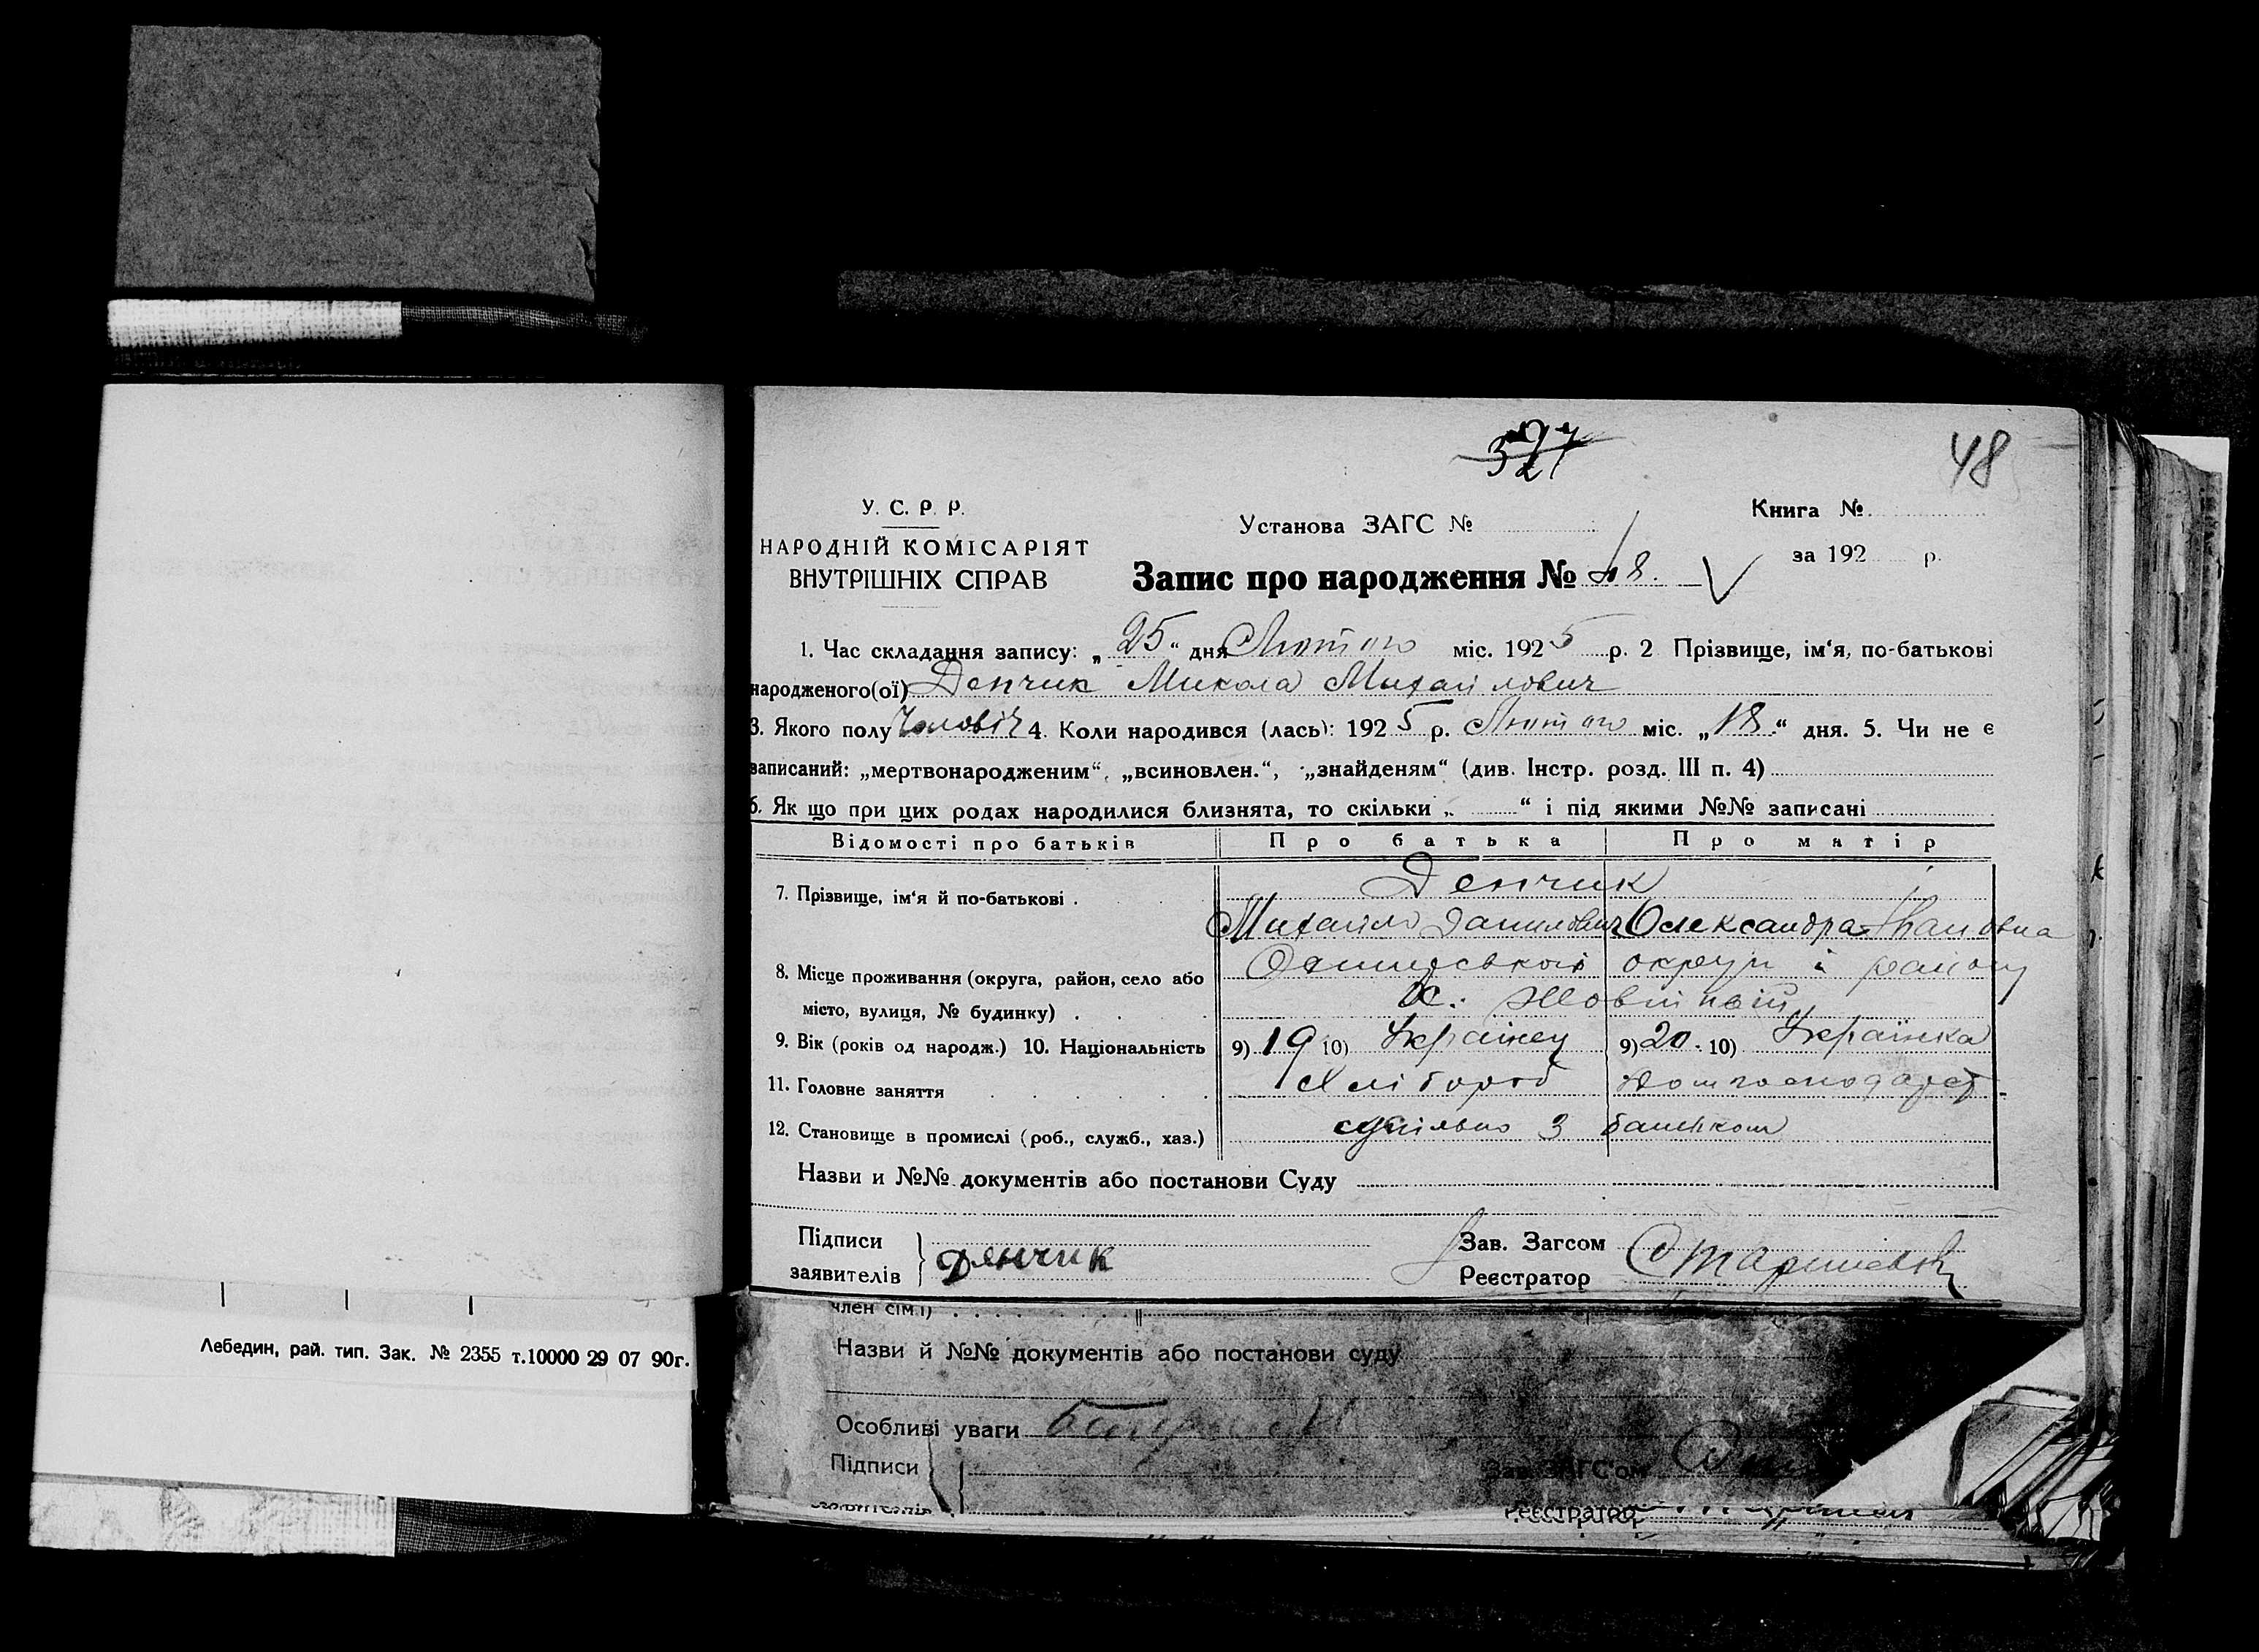 48
У. С. Р. Р.
НАРОДНІЙ КОМІСАРІЯТ
ВНУТРІШНІХ СПРАВ
Установа ЗАГС №
Книга №
за 192 р.
Запис про народження № 48.
1. Час складання запису: „25“ дня Лютого міс. 1925 р. 2 Прізвище, ім‘я, по-батькові
народженого(ої) Денчик Микола Михайлович
3. Якого полу Чоловіч 4. Коли народився (лась): 1925 р. Лютого міс. „18“ дня. 5. Чи не є
записаний: „мертвонародженим“, „всиновлен.“, „знайденям“ (див. Інстр. розд. III п. 4)
6. Як що при цих родах народилися близнята, то скільки „ “ і під якими №№ записані
Відомості про батьків Про батька Про матір
7. Прізвище, ім‘я й по-батькові . Денчик
Михайло Данилович Олександра Івановна
8. Місце проживання (округа, район, село або округи і району
місто, вулиця, № будинку) . Х.
9. Вік (років од народж.) 10. Національність 9) 19 10) Українец 9) 20. 10) Українка
11. Головне заняття Хлібороб Домгосподарст.
12. Становище в промислі (роб., служб., хаз.) сумільно з батьком
Назви и №№ документів або постанови Суду
Підписи
заявителів
Денчик
Зав. Загсом
Реєстратор
член сім.і)
Назви й №№ документів або постанови суду
Особливі уваги
Підписи
Зав. ЗАГС‘ом
Реєстратор
Лебедин, рай. тип. Зак. № 2355 т.10000 29 07 90г.